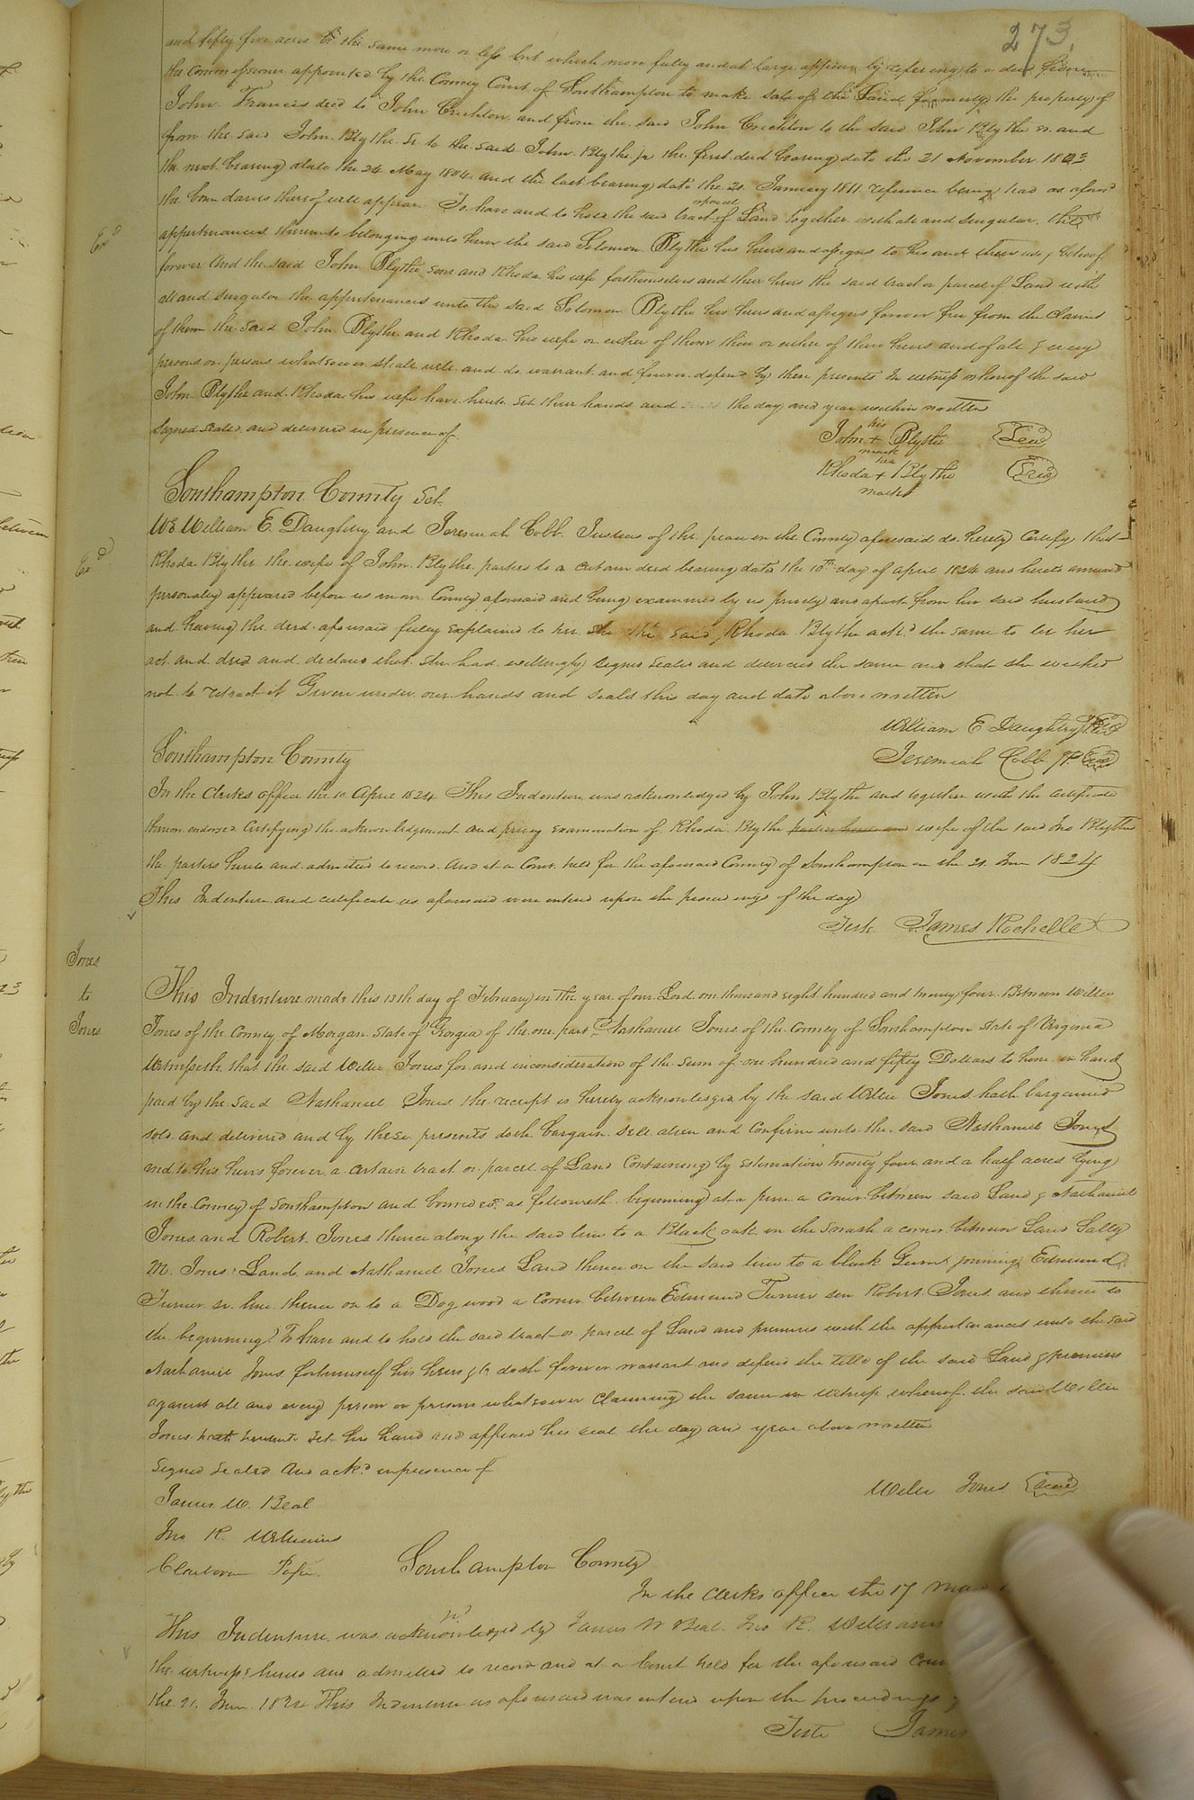 273.
and fifty five acres be the same more or less but which more fully and at large appear by refering to a deed from
the Commissioners appointed by the County Court of Southampton to make sale of the Land formerly the property of
John Francis deed to John Crichlow and from the said John Crichlow to the said John Blythe sr. and
from the said John Blythe Sr to the said John Blythe jr the first deed bearing date the 21 November 1803
the next bearing date the 24 May 1804 and the last bearing date the 21 January 1811 reference being had as afores.d
the boundaries thereof will appear To have and to hold the said tract of Land together with all and singular the
appertenances thereunto belonging unto him the said Solomon Blythe his heirs and assigns to his and their use & behoof
forever And the said John Blythe senr and Rhoda his wife for themselves and their heirs the said tract or parcel of Land with
all and singular the appertenances unto the said Solomon Blythe his heirs and assigns forever free from the claims
of them the said John Blythe and Rhoda his wife or either of them their or either of their heirs and of all & every
person or persons whatsoever shall will and do warrant and forever defend by these presents In witness whereof the said
John Blythe and Rhoda his wife have hereto set their hands and seals the day and year within written
Signed Sealed and delivered in presence of
his
John + Blythe Seal
mark
her
Rhoda + Blythe Seal
mark
Southampton County Sct.
We William E. Daughtry and Jeremiah Cobb Justices of the peace in the County aforesaid do hereby Certify that
Rhoda Blythe the wife of John Blythe parties to a certain deed bearing date the 10th day of april 1824 and hereto annexed
personally appeared before us in our County aforesaid and being examined by us privily and apart from her said husband
and having the deed aforesaid fully explained to her She the said Rhoda Blythe ackd the same to be her
act and deed and declared that She had willingly signed sealed and delivered the same and that she wished
not to retract it Given under our hands and seals this day and date above written
William E Daughtry JP Seal
Jeremiah Cobb JP Seal
Southampton County
In the Clerks office the 10 April 1824 This Indenture was acknowledged by John Blythe and together with the certificate
thereon endorsed Certifying the acknowledgement and privy examination of Rhoda Blythe parties hereto and wife of the said Jno Blythe
the parties hereto and admitted to record. And at a Court held for the aforesaid County of Southampton on the 21. June 1824
This Indenture and certificate as aforesaid were entered upon the proceedings of the day
Teste James Rochelle
Jones
to
Jones
This Indenture made this 13th day of February in the year of our Lord one thousand eight hundred and twenty four Between Willie
Jones of the County of Morgan State of Georgia of the one part Nathaniel Jones of the County of Southampton State of Virginia
Witnesseth that the said Willie Jones for and in consideration of the sum of one hundred and fifty Dollars to him in hand
paid by the said Nathaniel Jones the receipt is hereby acknowledged by the said Willie Jones hath bargained
sold and delivered and by these presents doth bargain sell alien and Confirm unto the said Nathaniel Jones
and to his heirs forever a certain tract or parcel of Land Containing by estimation twenty four and a half acres lying
in the County of Southampton and bounded as followeth begining at a pine a corner between said Land & Nathaniel
Jones and Robert Jones thence along the said line to a Black oak in the Snash a corner between Land Sally
M. Jones Lands and Nathaniel Jones Land thence on the said line to a black Gum joining Edmund
Turner sr. line thence on to a Dogwood a Corner between Edmund Turner sen Robert Jones and thence to
the beginning To have and to hold the said tract or parcel of Land and premises with the appurtanances unto the said
Nathaniel Jones for himself his heirs &c doth forever warrant and defend the title of the said Land & premises
against all and every person or persons whatsoever Claiming the same in witness whereof the said Willie
Jones hath hereunto set his hand and affixed his seal the day and year above written
Signed Sealed And ackd in presence of
Willie Jones Seal
James W. Beal
Jno R. Williams
Claiborn Pope
Southampton County
In the Clerks office the 17 May
This Indenture was acknowledged by James W Beal Jno R. Williams
the witnesses hereto and admitted to record and at a Court held for the aforesaid Coun
the 21. June 1824 This Indenture as aforesaid was entered upon the proceedings
Teste James